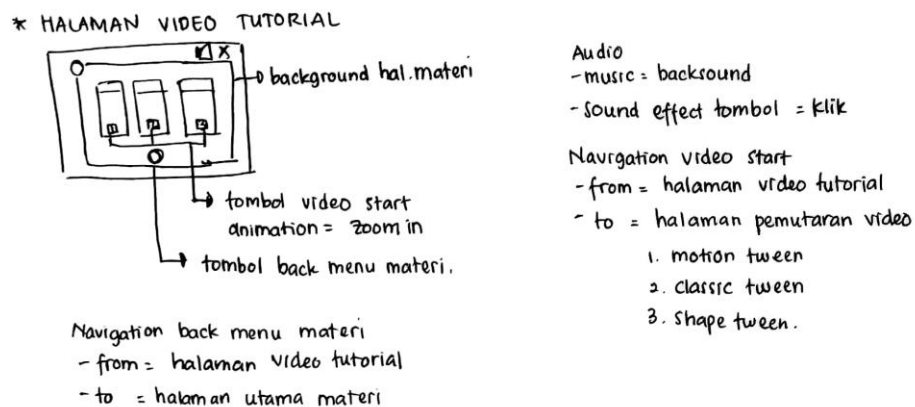 * HALAMAN VIDEO TUTORIAL
X
background hal. materi
tombol video start
animation = zoom in
tombol back menu materi.
Navigation back menu materi
- from = halaman video tutorial
- to = halaman utama materi
Audio
- music = backsound
- sound effect tombol = klik
Navigation video start
- from = halaman video tutorial
- to = halaman pemutaran video
1. motion tween
2. classic tween
3. shape tween.